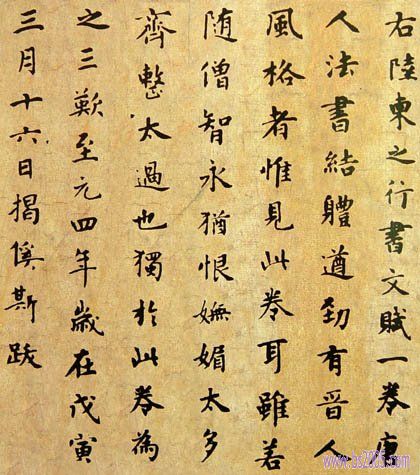 右陸柬之行書文賦一卷唐
人法書結體遒勁有晉人
風格者惟見此卷耳雖若
隨僧智永猶恨嫵媚太多
齊整太過也獨於此卷為
之三歎至元四年歲在戊寅
三月十六日揭傒斯跋
www.bs2005.com